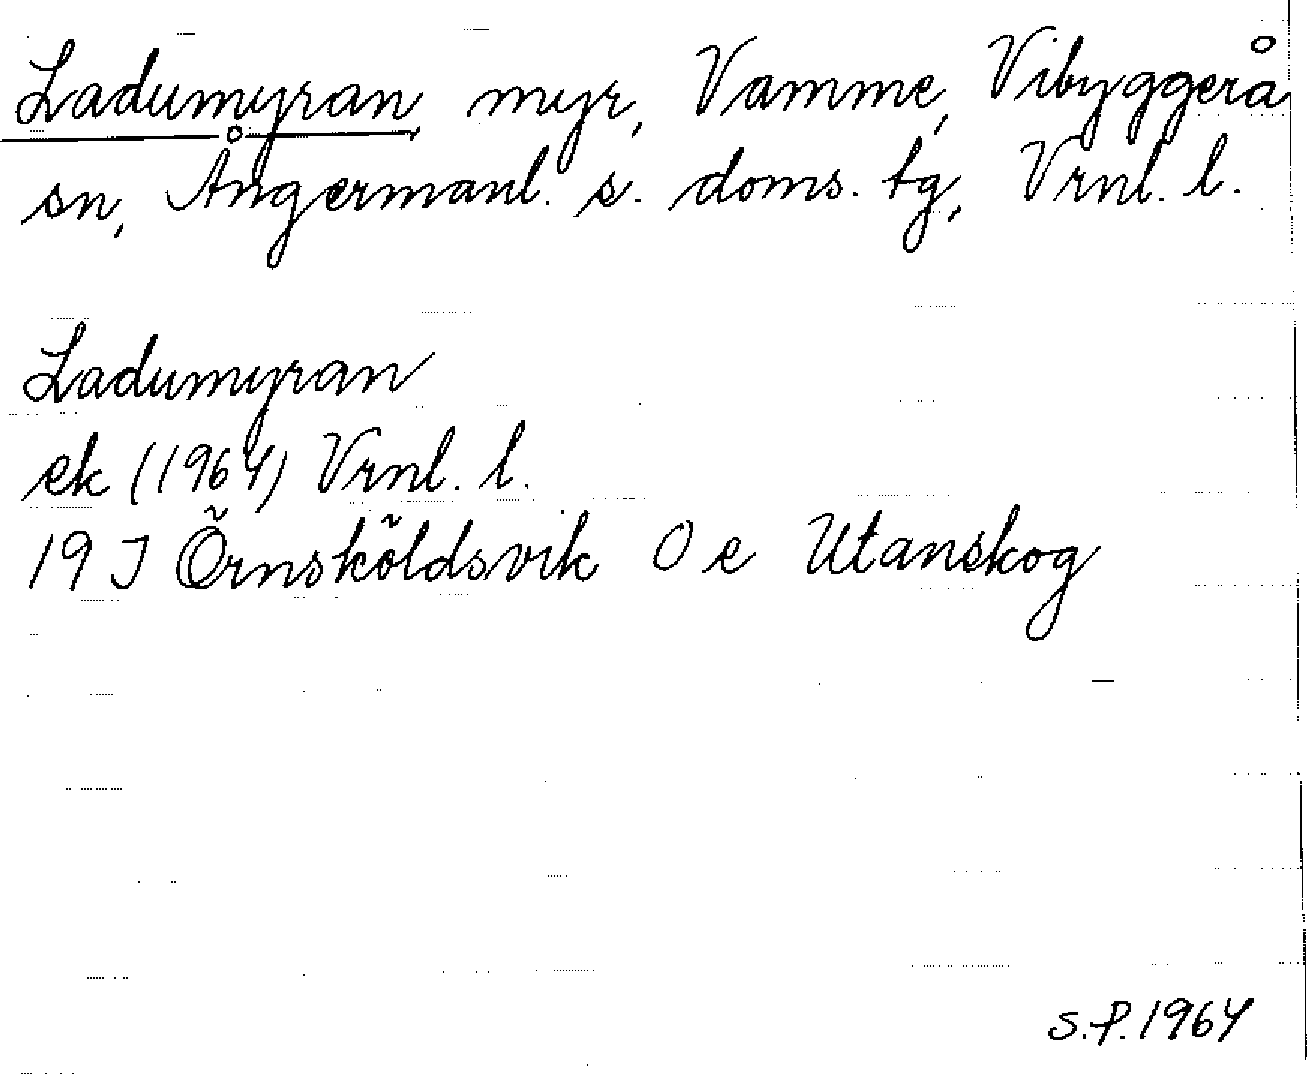 Ladumyran, myr, Vamme, Vibyggerå
sn, Ångermanl. s. doms. tg, Vrnl. l.
Ladumyran
ek (1964) Vrnl. l.
19 J Örnsköldsvik 0 e Utanskog
S.P. 1964